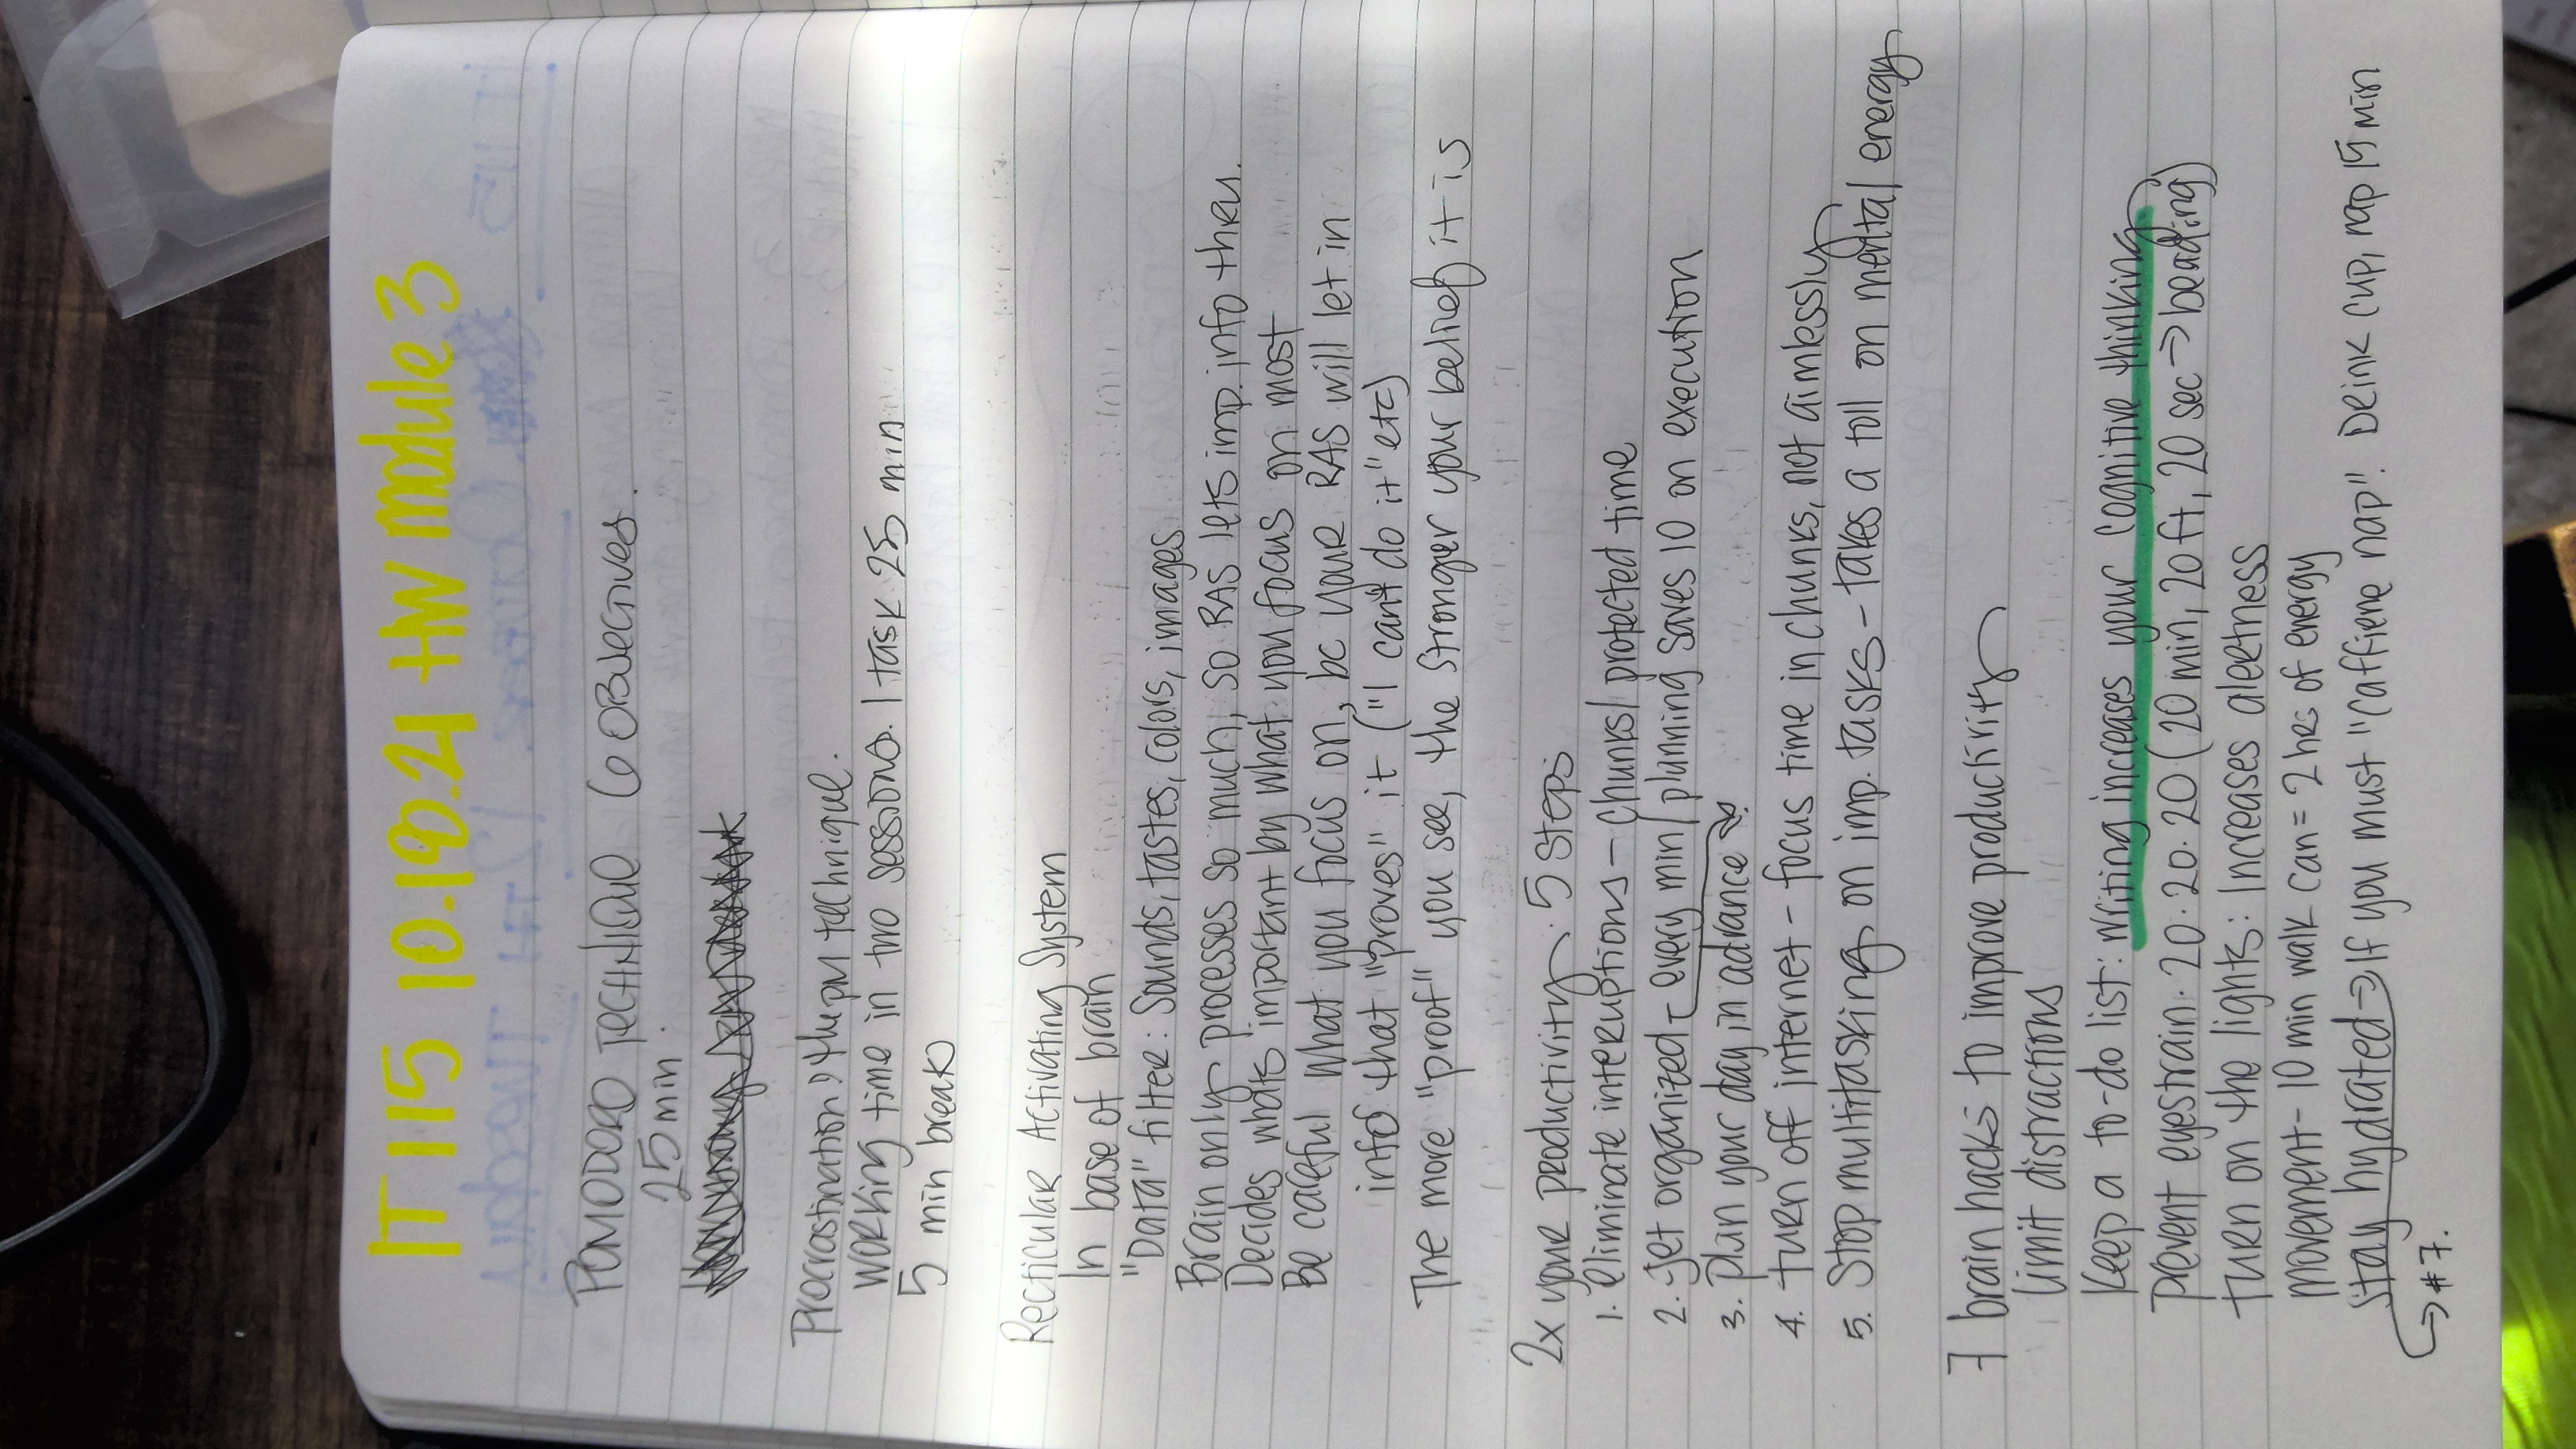 IT 115 10.18.21 HW Module 3
POMODORO TECHNIQUE 6 OBJECTIVES.
25 min.
Procrastination > the PM technique.
Working time in two sessions. 1 task 25 min
5 min break
Recticular Activating System
In base of brain
"Data" filter: Sounds, tastes, colors, images
Brain only processes so much, so RAS lets imp. info thru.
Decides whats important by what you focus on most
Be careful what you focus on, bc your RAS will let in
info that "proves" it ("I can't do it" etc)
The more "proof" you see, the stronger your belief it is
2x your productivity. 5 steps
1. eliminate interuptions - chunks/protected time
2. get organized - every min/planning saves 10 on execution
3. plan your day in advance
4. turn off internet - focus time in chunks, not aimlessly
5. Stop multitasking on imp. tasks - takes a toll on mental energy
7 brain hacks to improve productivity
limit distractions
Keep a to-do list: writing increases your cognitive thinking
prevent eyestrain. 20.20.20 (20 min, 20 ft, 20 sec → beading)
turn on the lights: Increases alertness
movement - 10 min walk can = 2 hrs of energy
stay hydrated → If you must "caffiene nap". Drink cup, nap 15 min
→ #7.
IT 115 October 12TH Tuesday